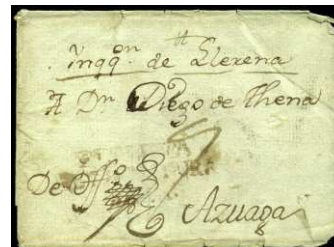 Ynqqon de Llerena
A Dn Diego de Thena
De Offo
Azuaga